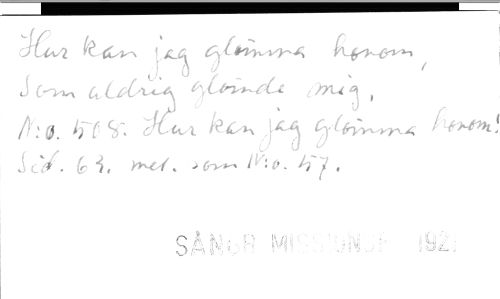 Hur kan jag glömma honom,
Som aldrig glömde mig.
N:o. 508. Hur kan jag glömma honom!
Sid. 63. mel. som N:o. 57.
SÅNGR MISSIONS 192